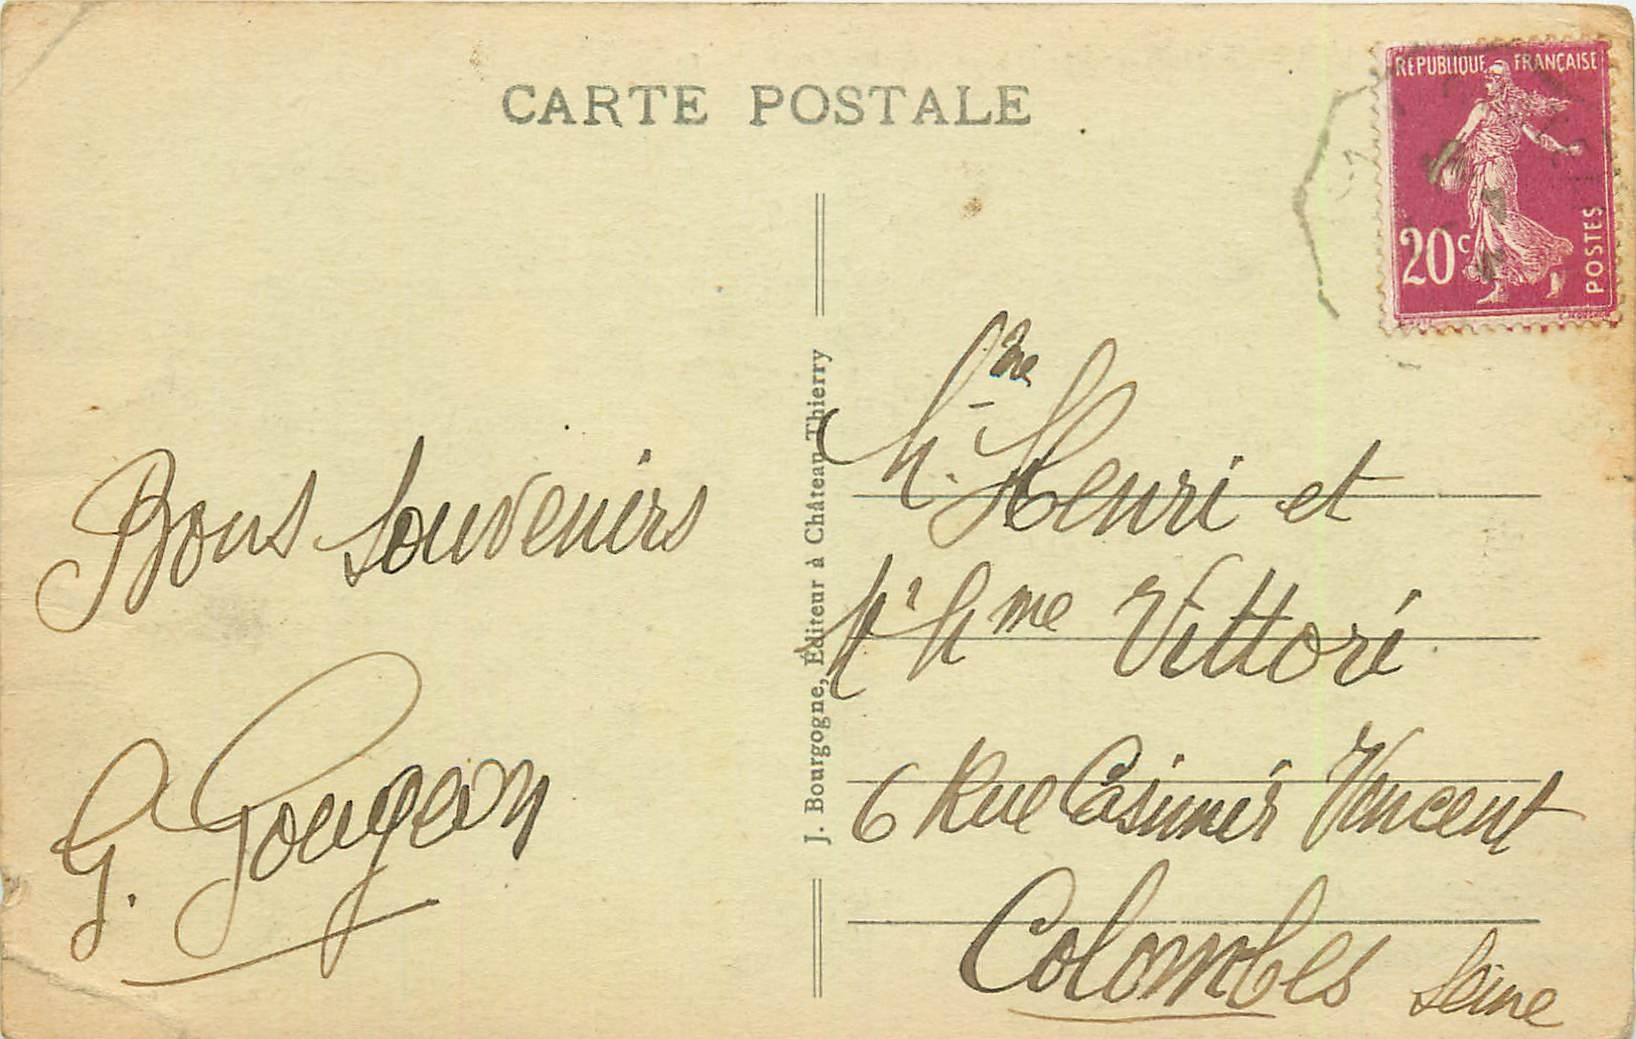 CARTE POSTALE
REPUBLIQUE FRANÇAISE
20c
POSTES
J. Bourgogne, Éditeur à Château-Thierry
Bons souvenirs
G. Pougeon
Henri et
Mme Vittori
6 Rue Casimir Vincent
Colombes Seine